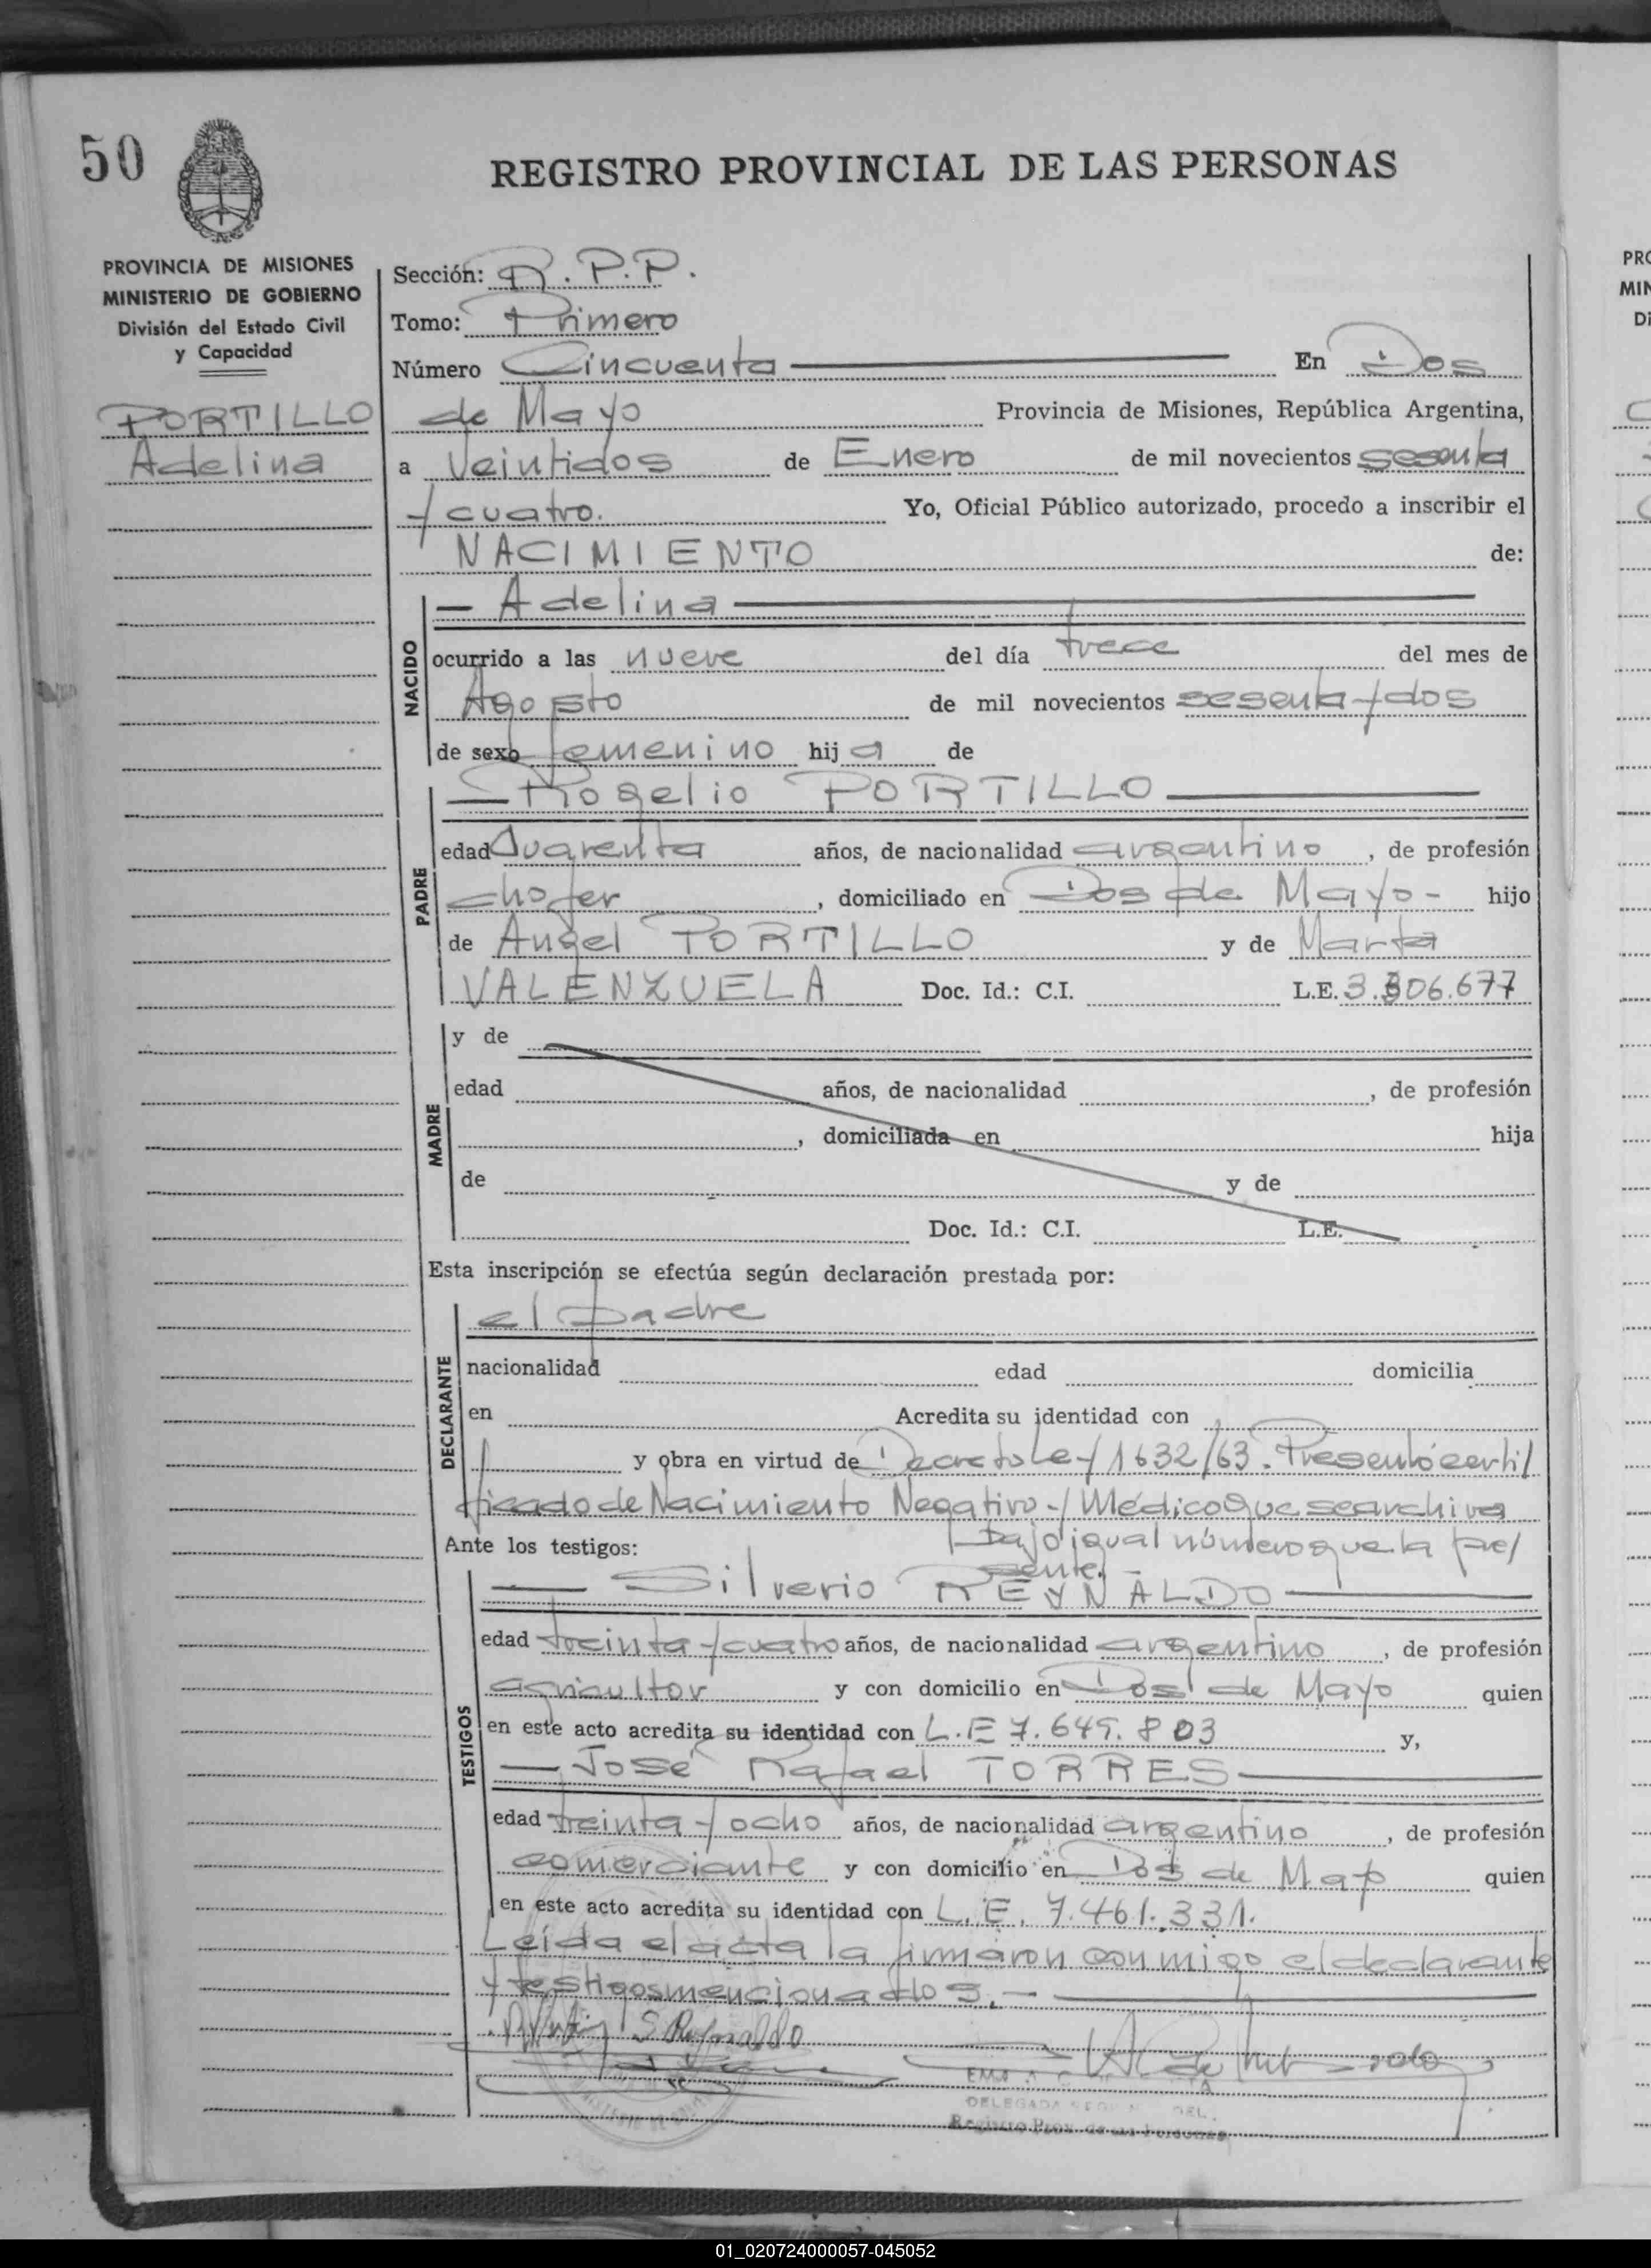 50
REGISTRO PROVINCIAL DE LAS PERSONAS
PROVINCIA DE MISIONES
MINISTERIO DE GOBIERNO
División del Estado Civil
y Capacidad
PORTILLO
Adelina
Sección: R.P.P.
Tomo: Primero
Número Cincuenta En Dos
de Mayo Provincia de Misiones, República Argentina,
a Veintidos de Enero de mil novecientos sesenta
y cuatro. Yo, Oficial Público autorizado, procedo a inscribir el
NACIMIENTO de:
NACIDO
— Adelina
ocurrido a las nueve del día trece del mes de
Agosto de mil novecientos sesenta y dos
de sexo femenino hija de
PADRE
— Rogelio PORTILLO
edad Cuarenta años, de nacionalidad argentino, de profesión
chofer, domiciliado en Dos de Mayo- hijo
de Angel PORTILLO y de Marta
VALENZUELA Doc. Id.: C.I. L.E. 3.806.677
MADRE
y de
edad años, de nacionalidad , de profesión
, domiciliada en hija
de y de
Doc. Id.: C.I. L.E.
Esta inscripción se efectúa según declaración prestada por:
DECLARANTE
el padre
nacionalidad edad domicilia
en Acredita su identidad con
y obra en virtud de Decreto Ley 1632/63. Presentó certi/
ficado de Nacimiento Negativo y Médico que se archiva
bajo igual número que la pre/
sente.
Ante los testigos:
TESTIGOS
— Silverio REYNALDO
edad treinta y cuatro años, de nacionalidad argentino, de profesión
agricultor y con domicilio en Dos de Mayo quien
en este acto acredita su identidad con L.E 7.649.803 y,
— José Rafael TORRES
edad treinta y ocho años, de nacionalidad argentino, de profesión
comerciante y con domicilio en Dos de Mayo quien
en este acto acredita su identidad con L.E. 7.461.331.
Leída el acta la firmaron conmigo el declarante
y testigos mencionados.—
S Reynaldo
DELEGADA
Registro Prov. de las Personas
PRO
MIN
Di
01_020724000057-045052